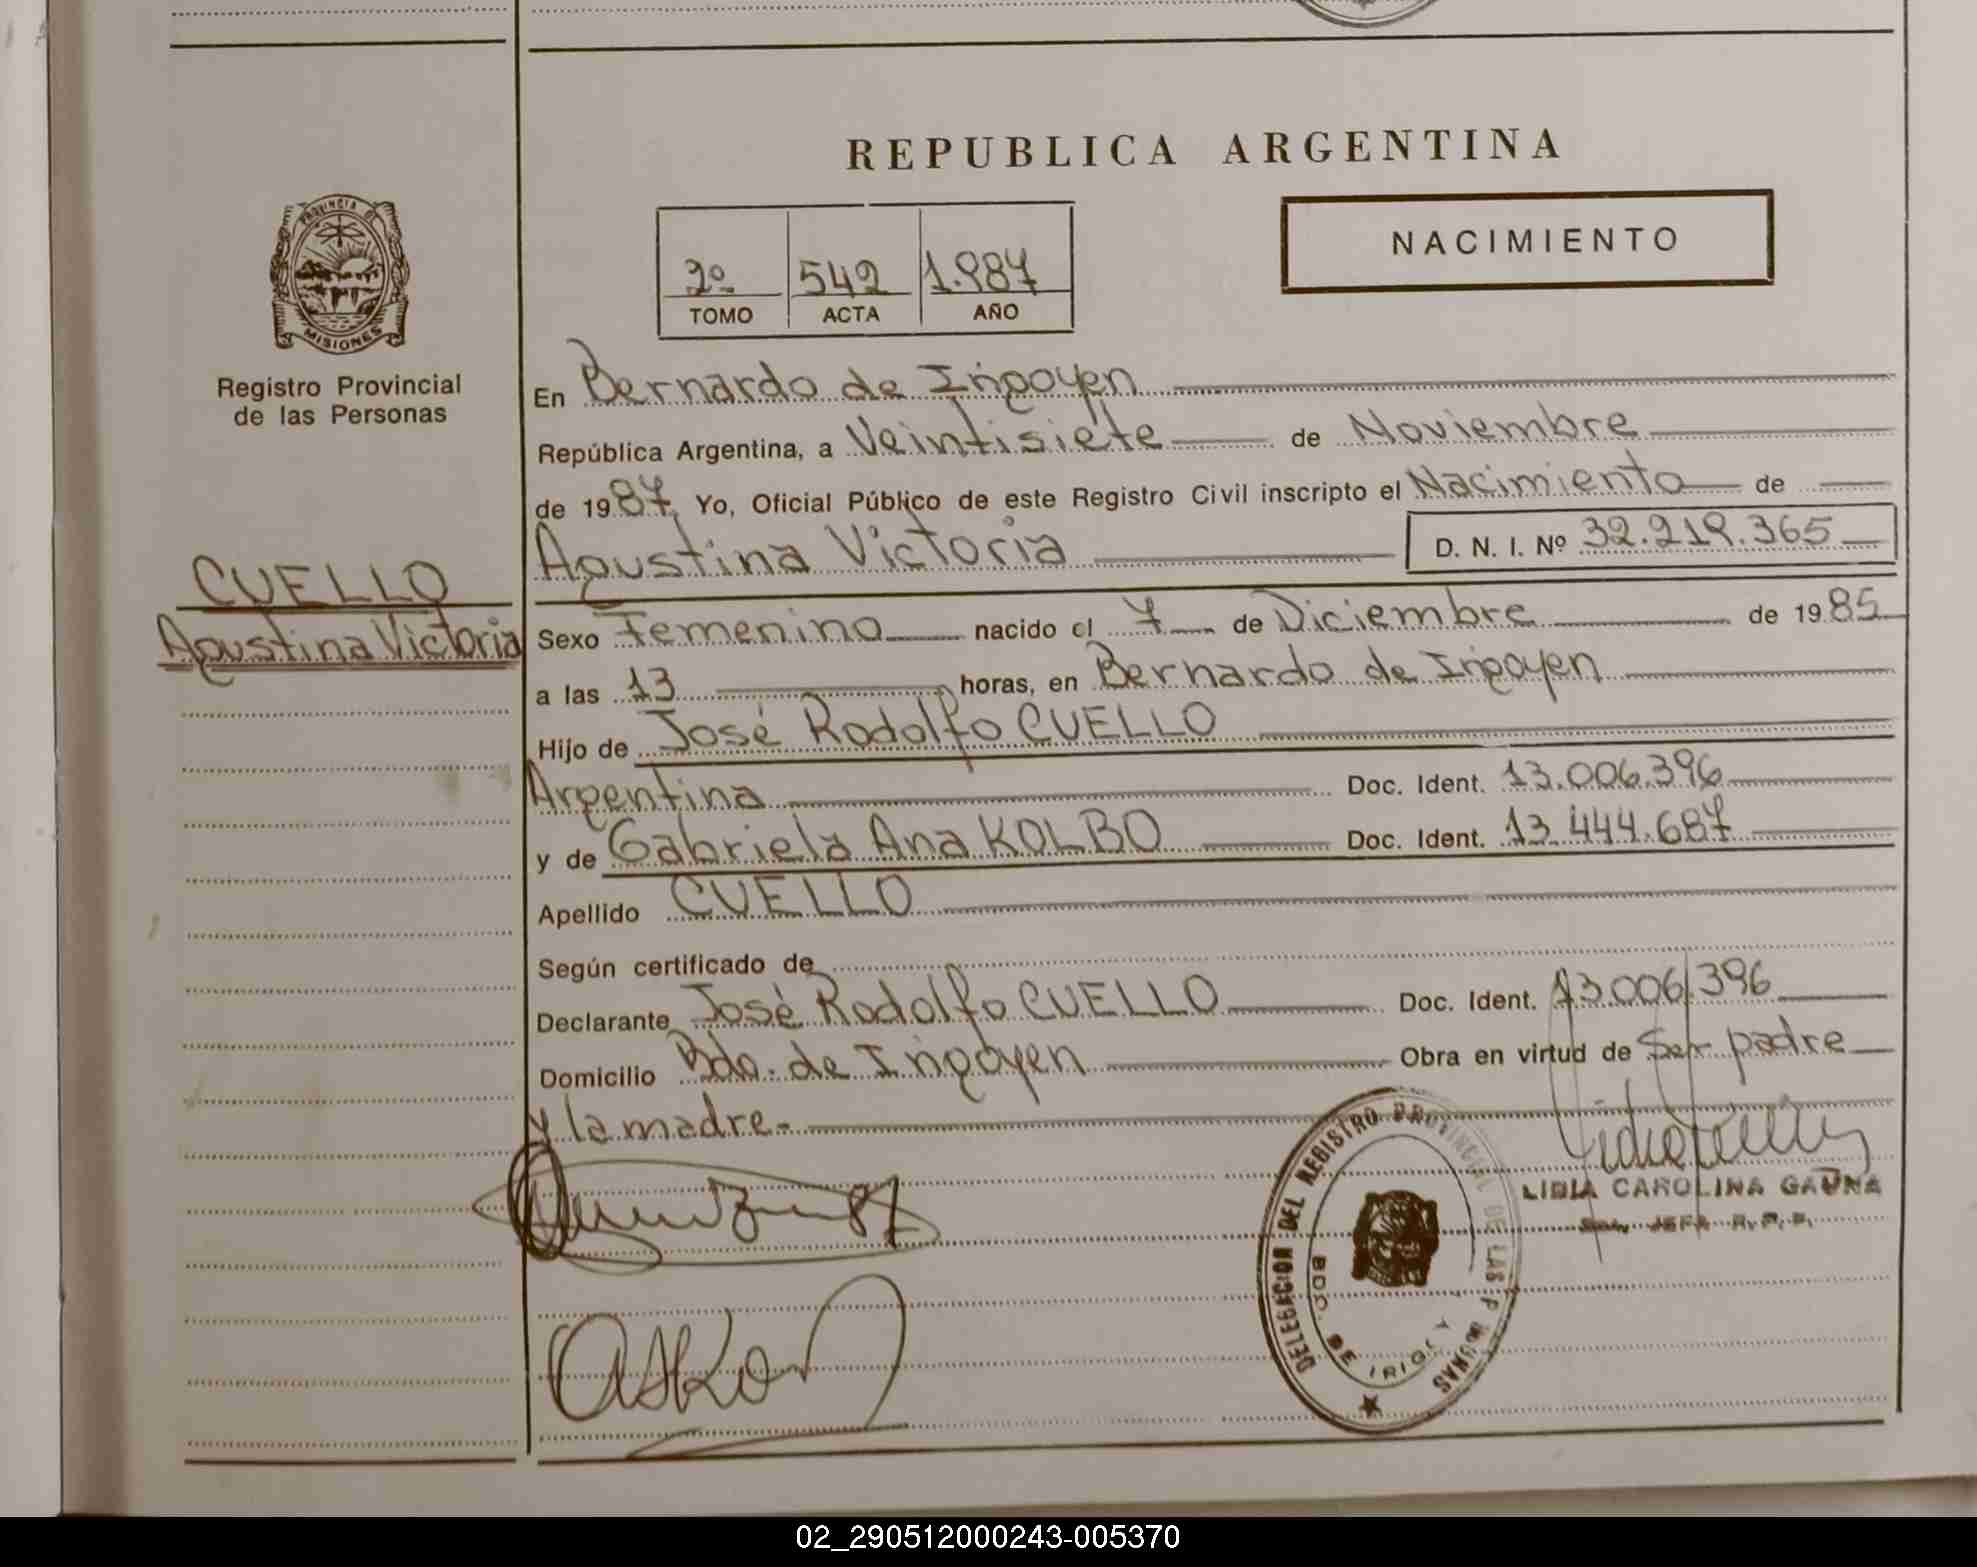 REPUBLICA ARGENTINA
NACIMIENTO
2º 542 1.987
TOMO ACTA AÑO
PROVINCIA DE
MISIONES
Registro Provincial
de las Personas
CUELLO
Agustina Victoria
En Bernardo de Irigoyen
República Argentina, a Veintisiete de Noviembre
de 1987, Yo, Oficial Público de este Registro Civil inscripto el Nacimiento de
Agustina Victoria D. N. I. Nº 32.219.365
Sexo Femenino nacido el 7 de Diciembre de 1985
a las 13 horas, en Bernardo de Irigoyen
Hijo de José Rodolfo CUELLO
Argentina Doc. Ident. 13.006.396
y de Gabriela Ana KOLBO Doc. Ident. 13.444.687
Apellido CUELLO
Según certificado de
Declarante José Rodolfo CUELLO Doc. Ident. 13.006.396
Domicilio Bdo. de Irigoyen Obra en virtud de Ser padre
y la madre.-
DELEGACION DEL REGISTRO PROVINCIAL DE LAS PERSONAS
BDO. DE IRIGOY
LIDIA CAROLINA GAUNA
JEFA R.P.P.
02_290512000243-005370